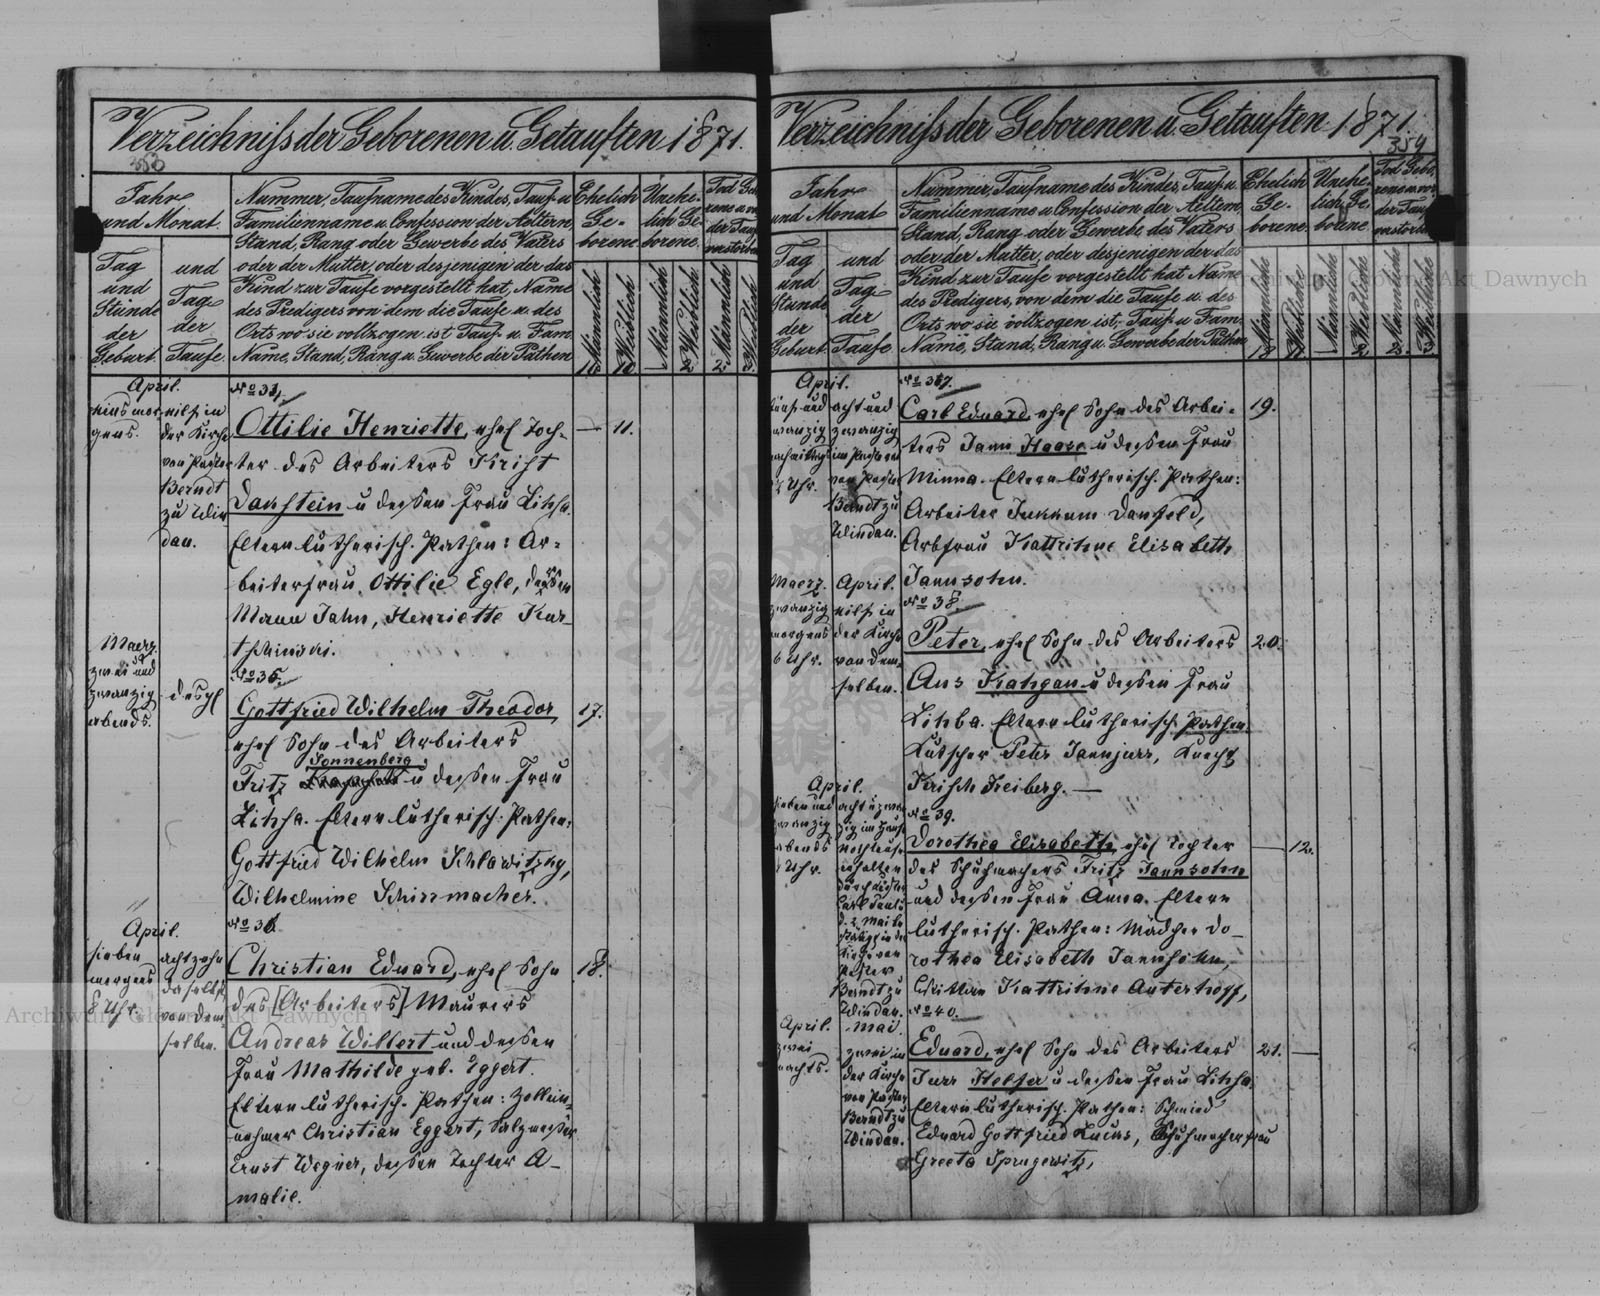 Verzeichniss der Geborenen u. Getauften 1871.
Jahr
und Monat.
Tag
und
Stunde
der
Geburt.
und
Tag
der
Taufe
Nummer, Taufname des Kindes, Tauf- u.
Familienname u. Confession der Aeltern,
Stand, Rang oder Gewerbe des Vaters
oder der Mutter, oder desjenigen der das
Kind zur Taufe vorgestellt hat, Name
des Predigers von dem die Taufe u. des
Orts wo sie vollzogen ist Tauf- u. Fam.
Name, Stand, Rang u. Gewerbe der Pathen
Ehelich
Ge-
borene
Unehe-
lich Ge-
borene.
Männlich
Weiblich
Männlich
Weiblich
Männlich
Weiblich
April.
eilf in
der Kirche
von Pastor
Berndt
zu Win
dau.
Ottilie Henriette, ehel Toch- — 11.
ter des Arbeiters Krist
Danstein u dessen Frau Lihsa.
Eltern lutherisch. Pathen: Ar-
beiterfrau Ottilie Egle, dessen
Mann Jahn, Henriette Kur-
Maerz
zwei und
zwanzig
abends.
desgl
No 35.
Gottfried Wilhelm Theodor, 17.
ehel Sohn des Arbeiters
Sonnenberg
Fritz u dessen Frau
Lihsa. Eltern lutherisch. Pathen:
Gottfried Wilhelm
Wilhelmine Schirrmacher.
April.
sieben
morgens
8 Uhr.
achtzehn
daselbst
von dem-
selben.
No 36.
Christian Eduard, ehel Sohn 18.
des [Arbeiters] Maurers
Andreas Willert und dessen
Frau Mathilde geb. Eggert.
Eltern lutherisch. Pathen: Zollein-
nehmer Christian Eggert, Salzmesser
Ernst Wegner, dessen Tochter A-
malie.
Verzeichniss der Geborenen u. Getauften 1871.
359
Jahr
und Monat
Tag
und
Stunde
der
Geburt.
und
Tag
der
Taufe.
Nummer, Taufname des Kindes, Tauf- u.
Familienname u. Confession der Aeltern,
Stand, Rang oder Gewerbe des Vaters
oder der Mutter, oder desjenigen der das
Kind zur Taufe vorgestellt hat, Name
des Predigers, von dem die Taufe u. des
Orts wo sie vollzogen ist, Tauf- u. Fam.
Name, Stand, Rang u. Gewerbe der Pathen
Ehelich
Ge-
borene.
Unehe-
lich Ge-
borene.
Männliche
Weibliche
Männliche
Weibliche
Männlich
Weibliche
April.
fünf und
zwanzig
Uhr.
acht und
zwanzig
von Pastor
Berndt zu
Windau.
No 37.
Carl Eduard, ehel Sohn des Arbei- 19.
ters Jann Haase u dessen Frau
Minna. Eltern lutherisch. Pathen:
Arbeiter Danfeld,
Arbfrau Kattrihne Elisabeth
Jannsohn.
Maerz
zwanzig
morgens
6 Uhr.
April.
eilf in
der Kirche
von dem-
selben.
No 38.
Peter, ehel Sohn des Arbeiters 20.
Ans Krahgan u dessen Frau
Lihba. Eltern lutherisch. Pathen:
Kutscher Peter Jannjurr, Knecht
Krisch Freiberg. —
April.
sieben und
zwanzig
abends
Uhr.
acht u zwan
zig im Hause
Nothtaufe
erhalten
Pastor
Berndt zu
Windau.
No 39.
Dorothea Elisabeth, ehel Tochter — 12.
des Schuhmachers Fritz Jannsohn
und dessen Frau Anna. Eltern
lutherisch. Pathen: Mädchen Do-
rothea Elisabeth Jannsohn,
Kattrihne Auterhoff,
April.
zwei
nachts.
Mai.
zwei in
der Kirche
von Pastor
Berndt zu
Windau.
No 40.
Eduard, ehel Sohn des Arbeiters 21. —
Jurr Helfer u dessen Frau Lihsa.
Eltern lutherisch. Pathen: Schmied
Eduard Gottfried Lucas, Schuhmacherfrau
Greeta Sprugewitz,
Archiwum Główne Akt Dawnych
Archiwum Główne Akt Dawnych